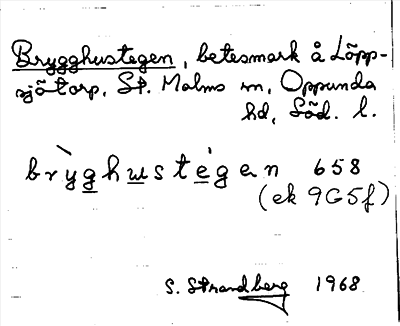 Brygghustegen, betesmark å Löpp-
sjötorp, St. Malms sn, Oppunda
hd, Söd. l.
brỳghustégen 658
(ek 9G5f)
S. Strandberg 1968